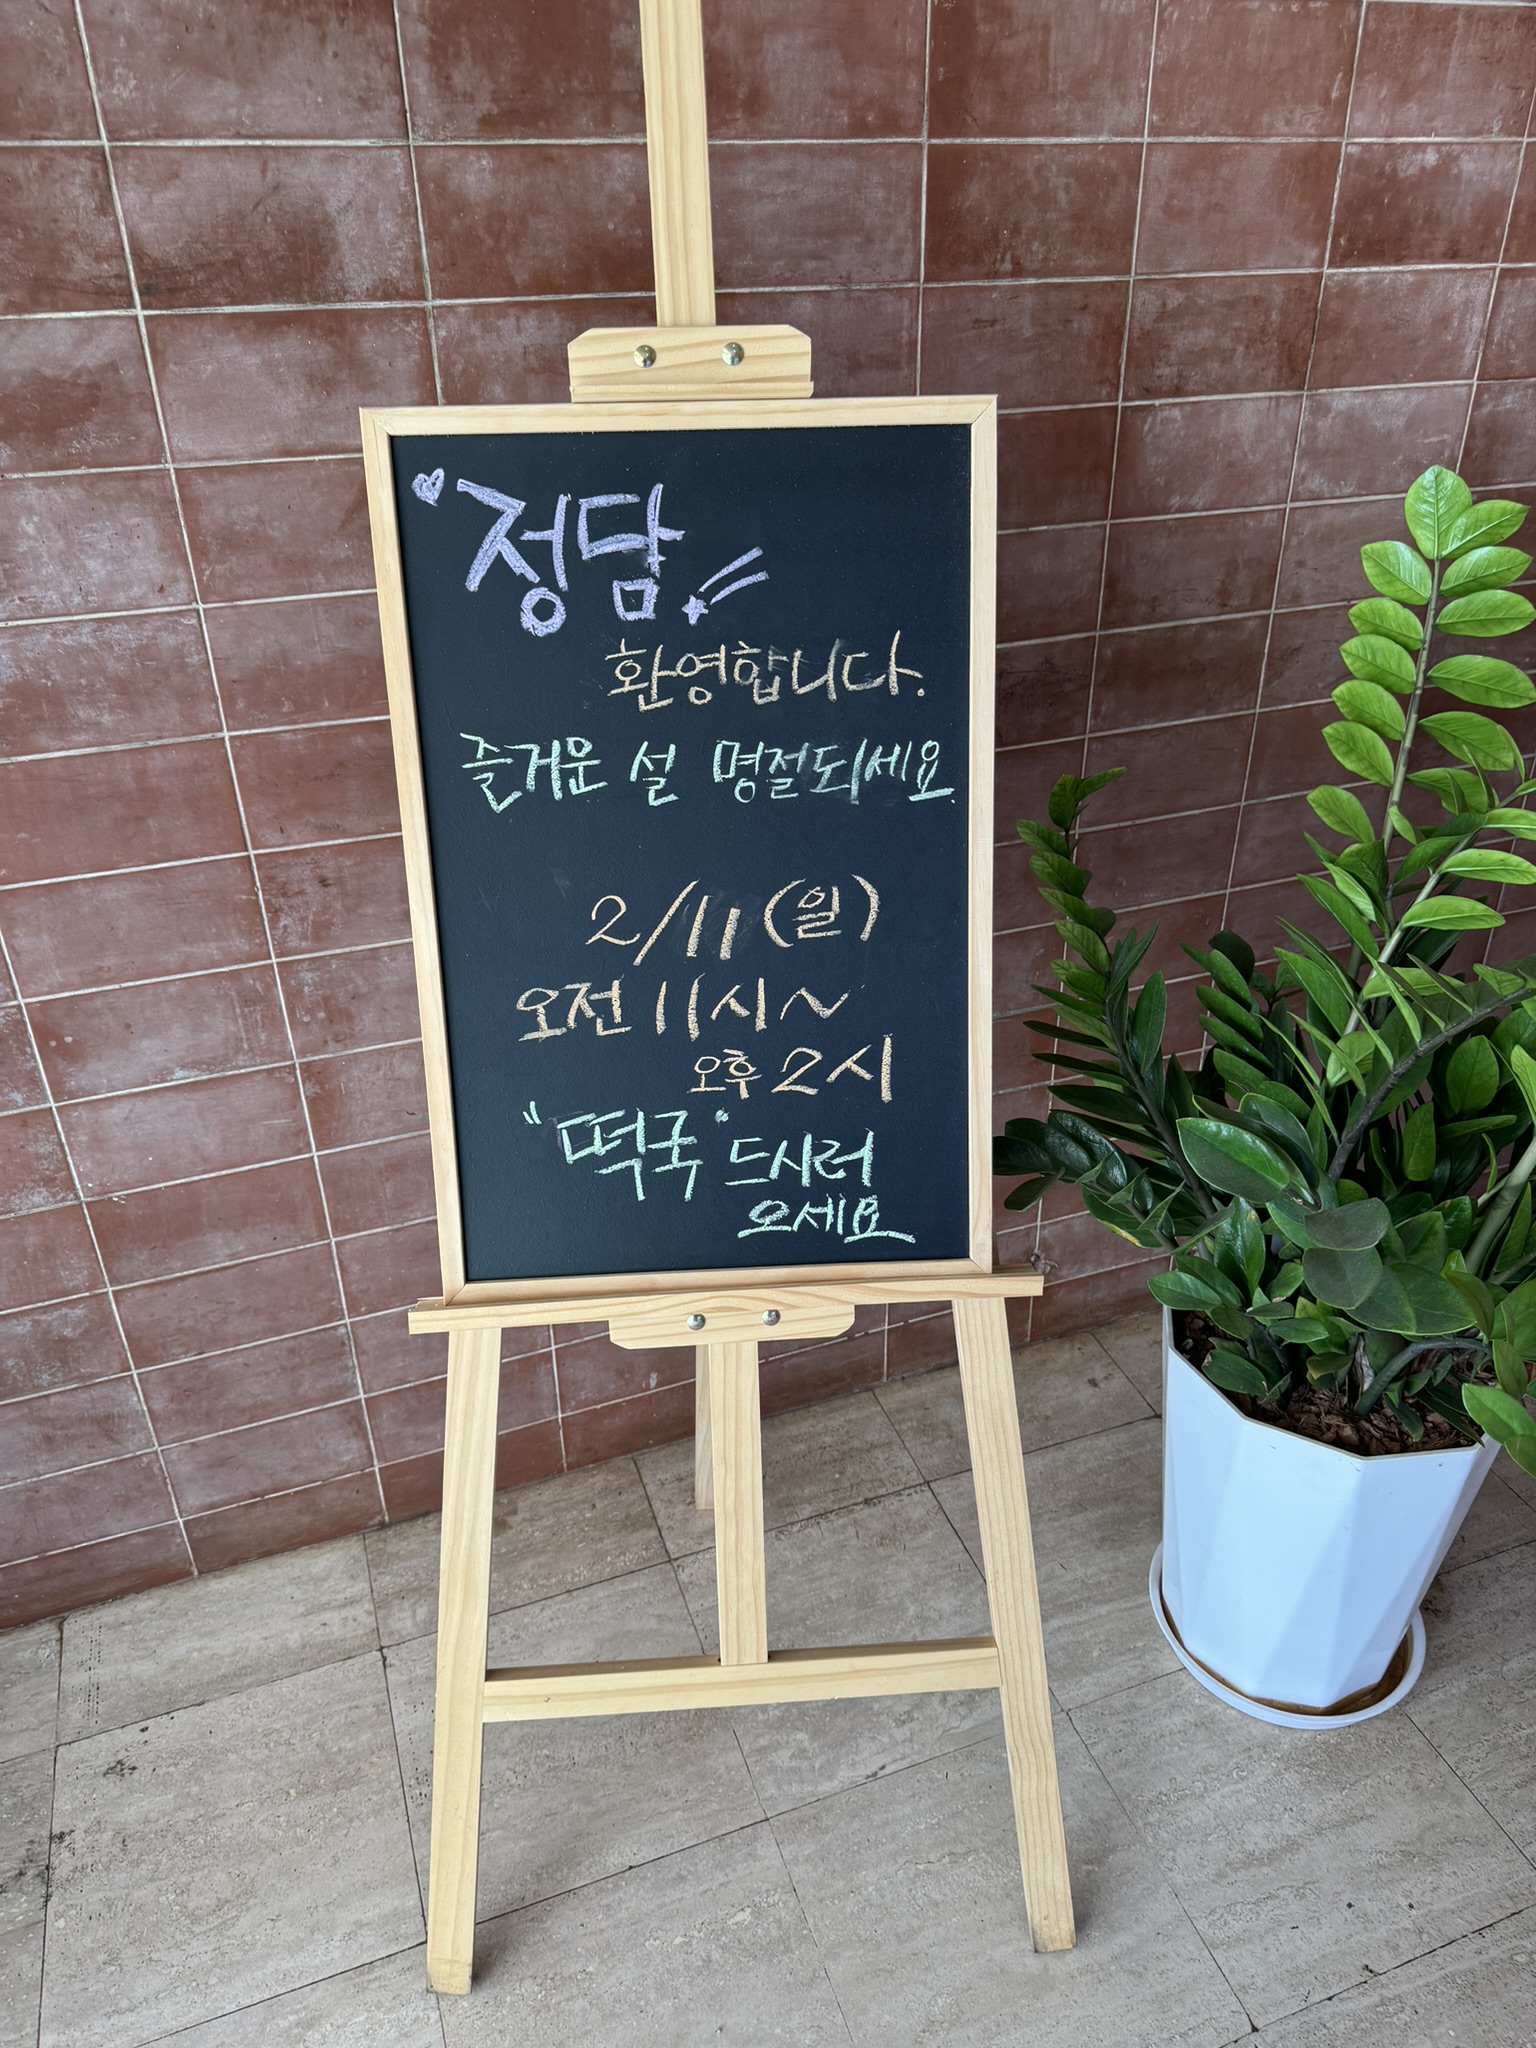 정담
환영합니다.
즐거운 설 명절되세요.
2/11 (일)
오전 11시~
오후 2시
"떡국" 드시러
오세요